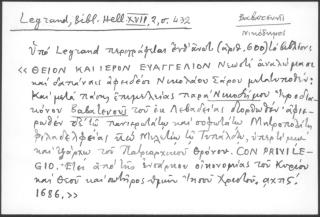 Legrand, Bibl. Hell. XVII, 2, σ. 432
Βαβατενῆ
Νικόδημος
Ὑπὸ Legrand περιγράφεται ὑπ' ἀριθ. (ἀριθ. 600) τὸ
«ΘΕΙΟΝ ΚΑΙ ΙΕΡΟΝ ΕΥΑΓΓΕΛΙΟΝ Νεωστὶ ἀναλώμασι
καὶ δαπάναις Νικολάου Σάρου μετατυπωθέν:
Καὶ μετὰ πάσης ἐπιμελείας παρὰ Νικοδήμου Ἱεροδια-
κόνου Βαβατενοῦ τοῦ ἐκ Λεβαδείας διορθωθὲν ἀφιε-
ρωθὲν τῷ πανιερωτάτῳ καὶ σοφωτάτῳ Μητροπολίτῃ
Φιλαδελφείας Μελετίῳ τῷ Τυπάλδῳ, ὑπερτίμῳ
καὶ ἐξάρχῳ τοῦ Πατριαρχικοῦ Θρόνου. CON PRIVILE-
GIO. Ἔτει ἀπὸ τῆς ἐνσάρκου οἰκονομίας τοῦ Κυρίου
καὶ Θεοῦ καὶ σωτῆρος ἡμῶν Ἰησοῦ Χριστοῦ, αχπϛ´.
1686.»